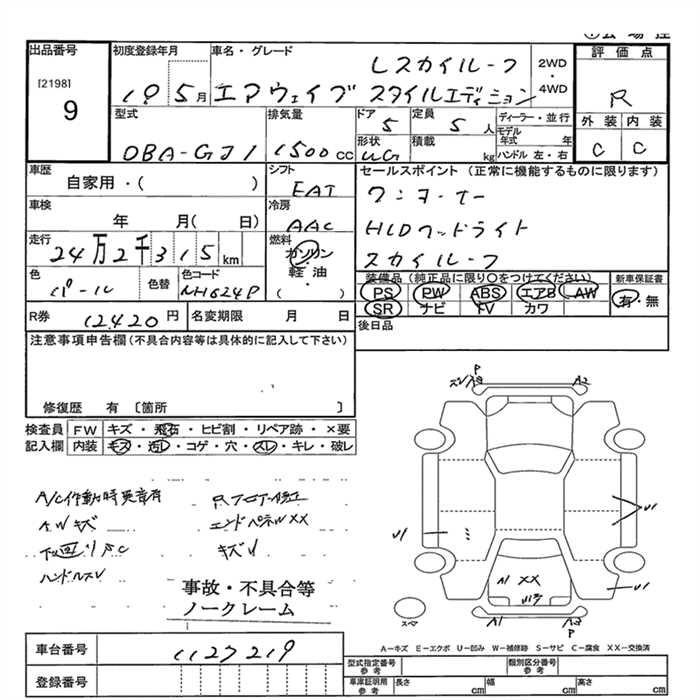 出品番号
[2198]
9
初度登録年月
19 5月
車名・グレード
Lスカイルーフ
エアウェイブ スタイルエディション
2WD
・
4WD
評価点
R
外装 内装
C C
型式
DBA-GJ1
排気量
1500cc
ドア
5
定員
5人
形状
WG
積載
kg
ディーラー・並行
モデル年式 年
ハンドル 左・右
車歴
自家用・( )
シフト
FAT
セールスポイント (正常に機能するものに限ります)
ワンオーナー
HIDヘッドライト
スカイルーフ
車検
年 月( 日)
冷房
AAC
走行
24万2千315km
燃料
ガソリン
・
軽油
( )
色
パール
色替
色コード
NH624P
装備品 (純正品に限り○をつけてください)
PS PW ABS エアB AW
SR ナビ TV カワ
新車保証書
有・無
R券
12420円
名変期限 月 日
後日品
注意事項申告欄 (不具合内容等は具体的に記入して下さい)
修復歴 有 〔箇所 〕
検査員記入欄
FW キズ・飛石・ヒビ割・リペア跡・×要
内装 キズ・汚レ・コゲ・穴・スレ・キレ・破レ
A/C作動時異音有
A.Wキズ
下回りSC
ハンドルスレ
R.フロアー修正
エンドパネルXX
キズU
事故・不具合等
ノークレーム
P
A2
U1
U1
U1
A1 XX
スペア
A1
A2
P
A-キズ E-エクボ U-凹み W-補修跡 S-サビ C-腐食 XX-交換済
車台番号
1127219
登録番号
型式指定番号
参考
類別区分番号
参考
車庫証明用
参考
長さ cm
幅 cm
高さ cm